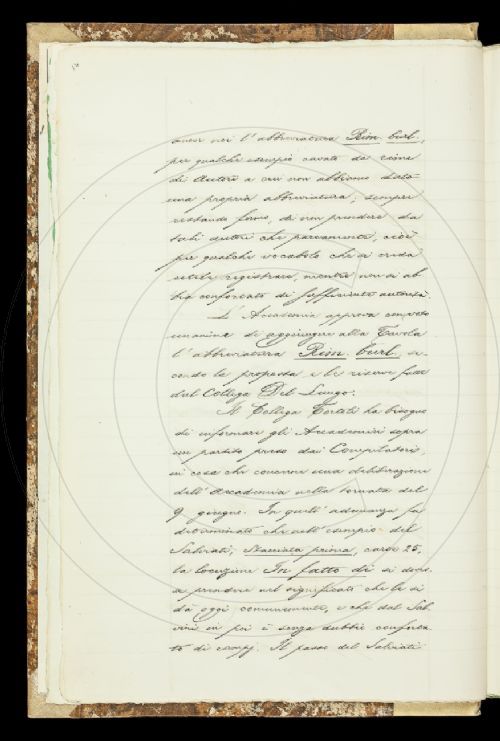 avere noi l'abbreviatura Rim. burl.,
per qualche esempio cavato da rime
di Autori a cui non abbiamo dato
una propria abbreviatura; sempre
restando fermo, di non prendere da
tali autori che parcamente, cioè
per qualche vocabolo che si creda
utile registrare, mentre non si ab
bia confortato di sufficiente autorità.
L'Accademia approva con voto
unanime di aggiungere alla Tavola
l'abbreviatura Rim. burl. se-
condo la proposta e le riserve fatte
dal Collega Del Lungo.
Il Collega Tortoli ha bisogno
di informare gli Accademici sopra
un partito preso dai Compilatori,
in cosa che concerne una deliberazione
dell'Accademia nella tornata del
9 giugno. In quell'adunanza fu
determinato che nell'esempio del
Salviati, Stacciata prima, carte 25,
la locuzione In fatto di si doves
se prendere nel significato che le si
dà oggi comunemente, e che dal Sal
vini in poi è senza dubbio conforta
to di esempj. Il passo del Salviati